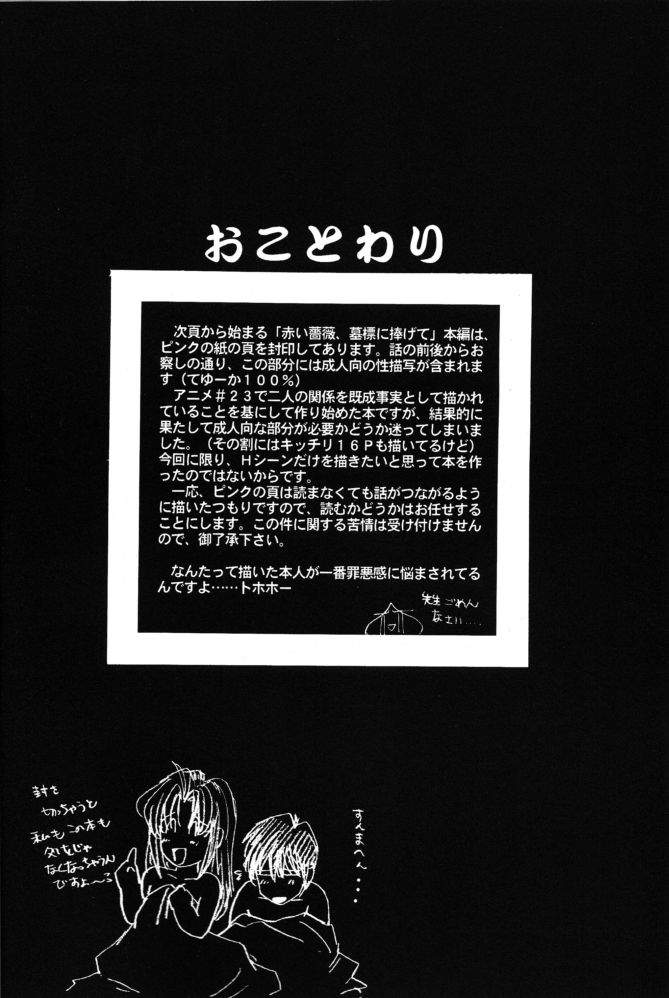 おことわり
次頁から始まる「赤い薔薇、墓標に捧げて」本編は、
ピンクの紙の頁を封印してあります。話の前後からお
察しの通り、この部分には成人向の性描写が含まれま
す（てゆーか１００％）
アニメ＃２３で二人の関係を既成事実として描かれ
ていることを基にして作り始めた本ですが、結果的に
果たして成人向な部分が必要かどうか迷ってしまいま
した。（その割にはキッチリ１６Ｐも描いてるけど）
今回に限り、Ｈシーンだけを描きたいと思って本を作
ったのではないからです。
一応、ピンクの頁は読まなくても話がつながるよう
に描いたつもりですので、読むかどうかはお任せする
ことにします。この件に関する苦情は受け付けません
ので、御了承下さい。
なんたって描いた本人が一番罪悪感に悩まされてる
んですよ……トホホー
先生ごめん
なさい……
封を
切っちゃうと
私もこの本も
処女じゃ
なくなっちゃうん
ですよ〜
すんまへん・・・